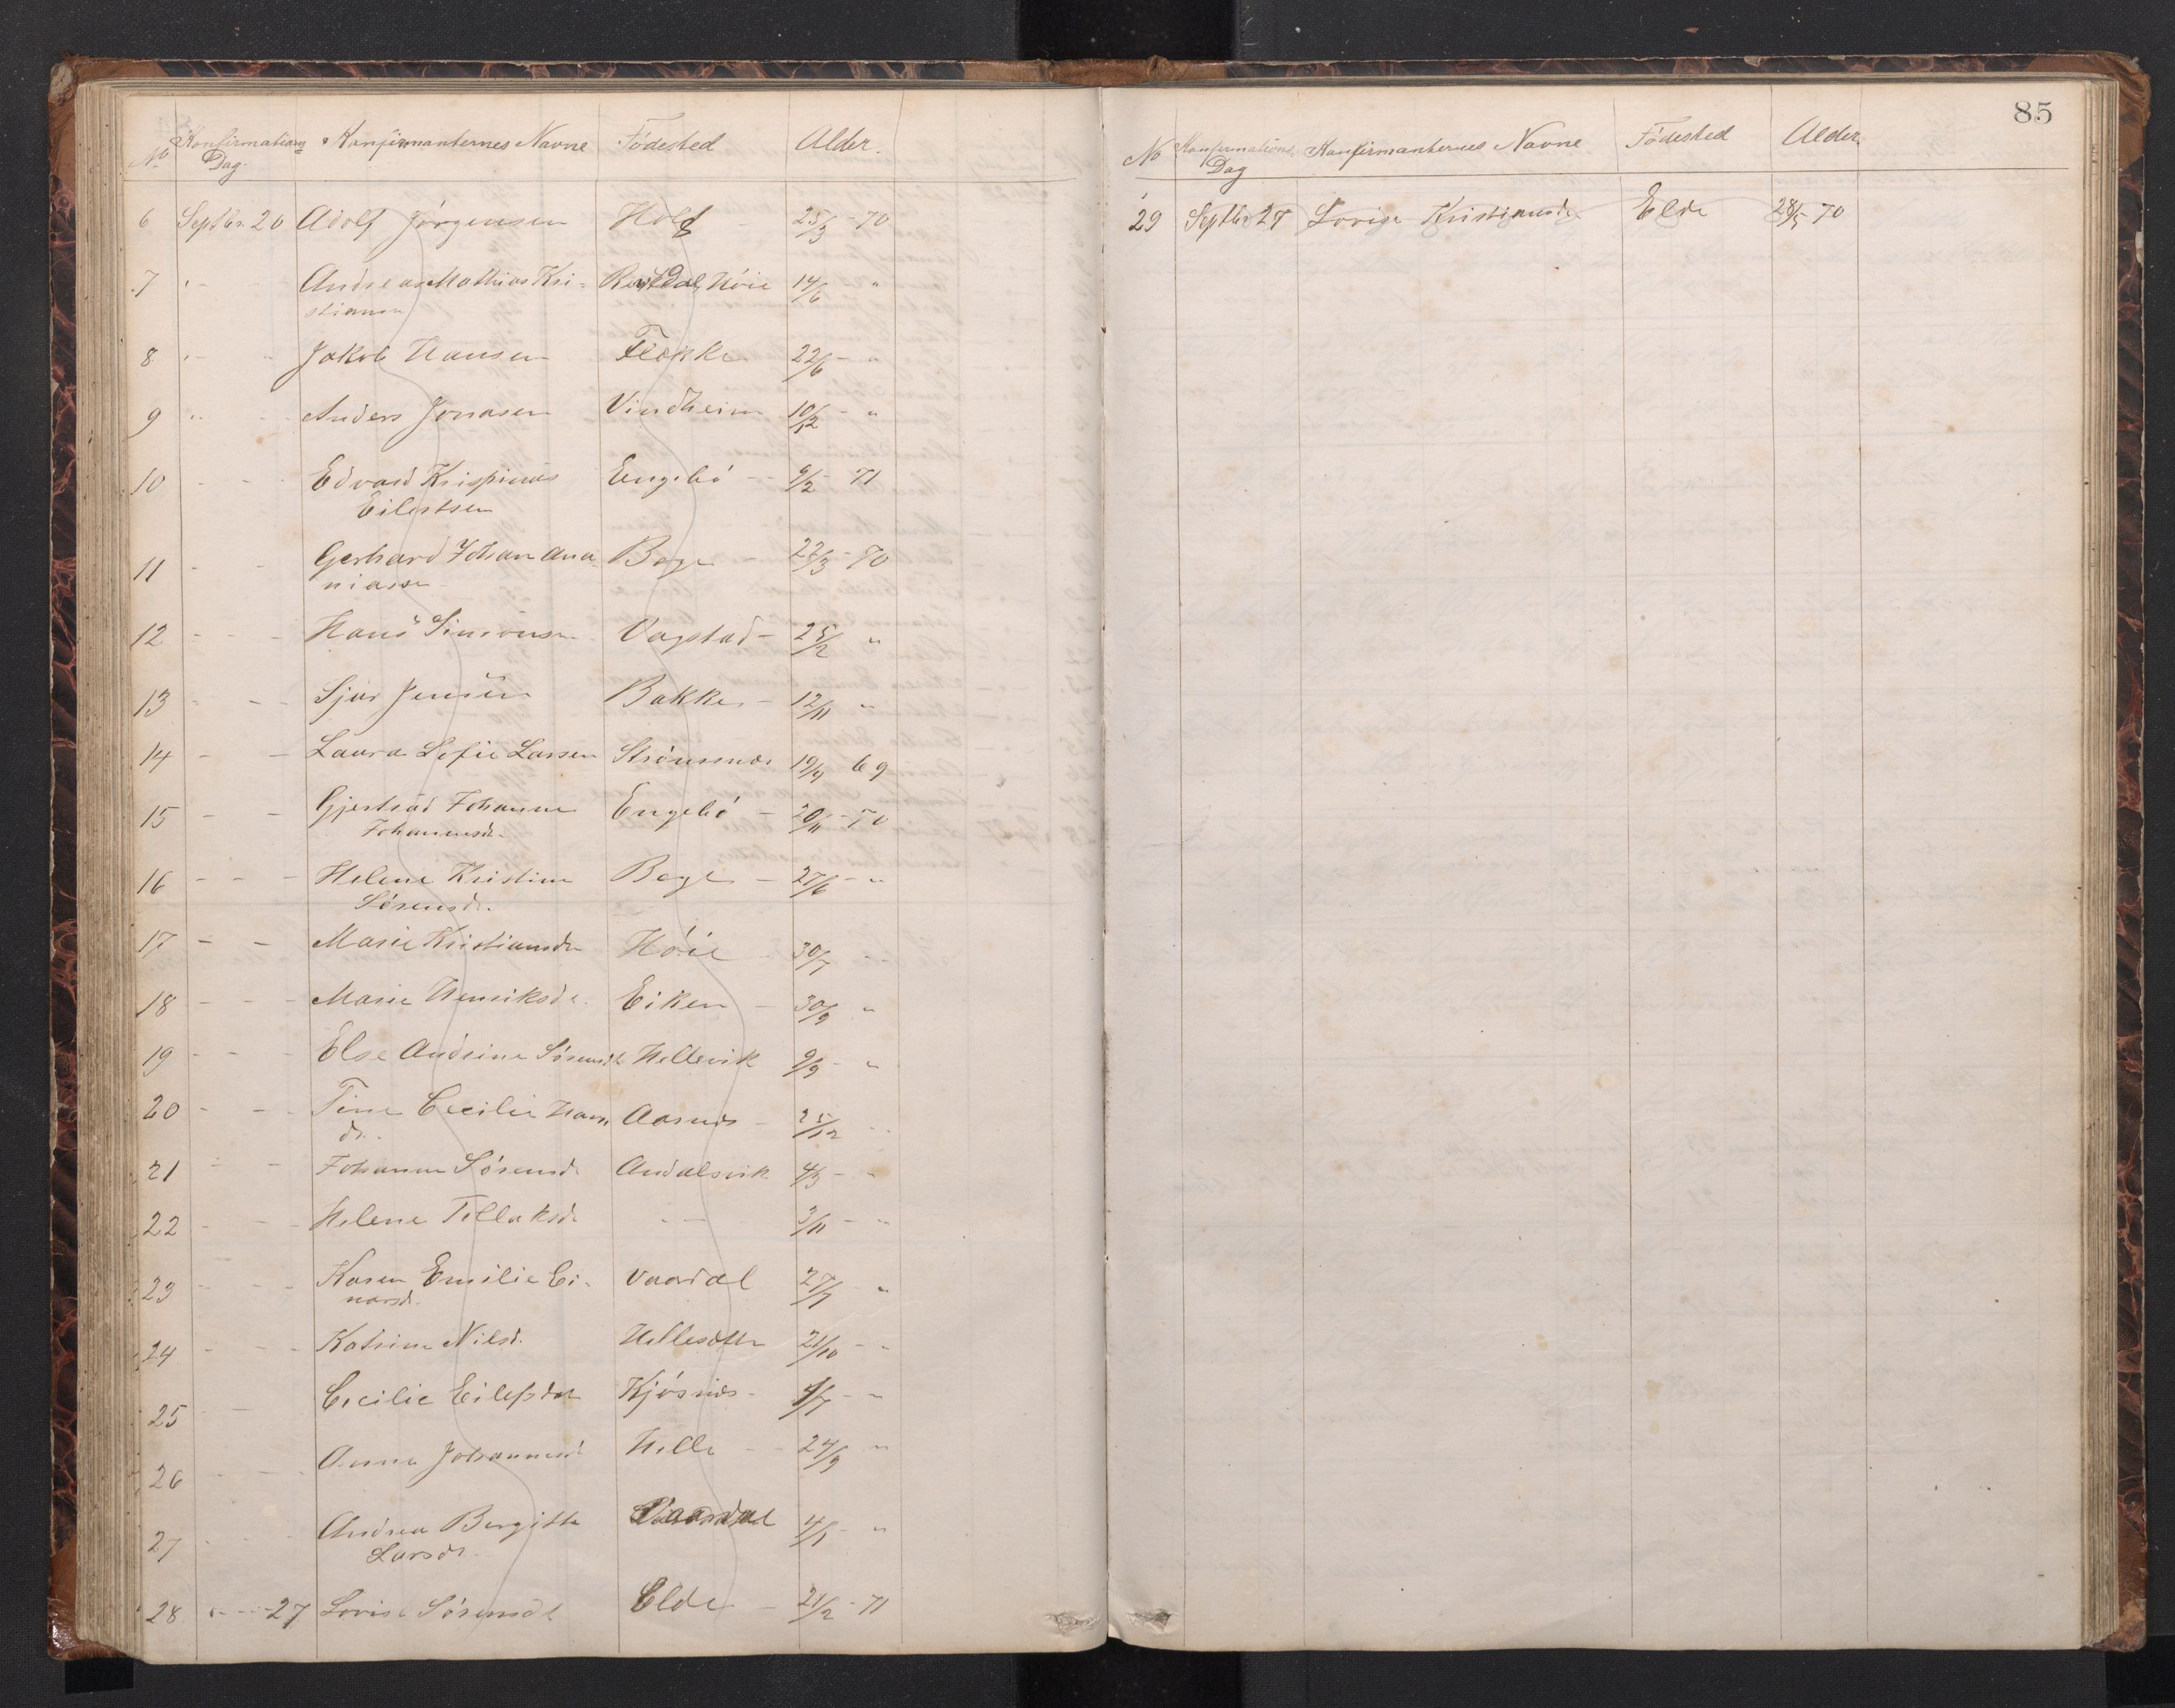 No Konfirmations Dag. Konfirmanternes Navne Födested Alder.
6 Septbr. 20 Adolf Jörgensen Holt 25/3 - 70
7 " - Andreas Mathias Kri- Höie 14/6 "
stiansen
8 " - Jakob Hansen Flekke 22/6 - "
9 " - Anders Jonasen Vindheim 10/12 - "
10 - - Edvard Krispinus Engebö - 6/2 - 71
Eilertsen
11 - - Gerhard Johan Ana- Boge - 22/3 - 70
niasse
12 - - Hans Simonsen Vagstad - 25/2 "
13 - - Sjur Jensen Bakke - 12/11 "
14 - - Laura Sofie Larsen Strömsnæs 19/9 69
15 - - Gjertrud Johanne Engebö - 20/11 - 70
Johannesdr.
16 - - - Helene Kristine Boge - 27/6 - "
Sörensdr.
17 - - Marie Kristiansdr Höie - 30/7 - "
18 - - - Marie Henriksdr. Eiken - 30/9 "
19 - - - Else Andrine Sörensdr Hellevik 9/9 - "
20 - - Tine Cecilie Hans Aasnæs - 25/12 "
dr.
21 - - Johanne Sörensdr Andalsvik 4/3 - "
22 - - - Helene Tollaksdr - - 3/11 - "
23 - - - Karen Emilie Ei- Vaardal 27/7 "
narsdr.
24 - - - Katrine Nilsdr. Hellesæter 21/10 - "
25 - - Cecilie Eilefsdtr Kjösnæs - 1/7 - "
26 - - - Anna Johannesdr Helle - 24/9 "
27 - - - Andrea Bergitte Vaardal 4/1 - "
Larsdr.
28 " - - 27 Lovise Sörensdt Elde - 21/2 - 71
85
No Konfirmations Dag Konfirmanternes Navne Födested Alder.
29 Septbr 27 Lovise Kristiansdr Elde 28/5 - 70